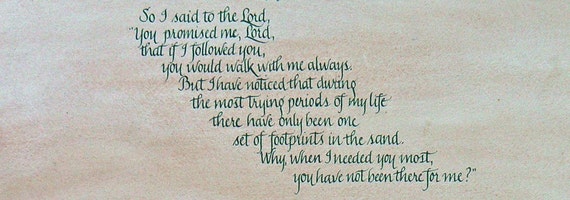 So I said to the Lord,
"You promised me, Lord,
that if I followed you,
you would walk with me always.
But I have noticed that during
the most trying periods of my life
there have only been one
set of footprints in the sand.
Why, when I needed you most,
you have not been there for me?"